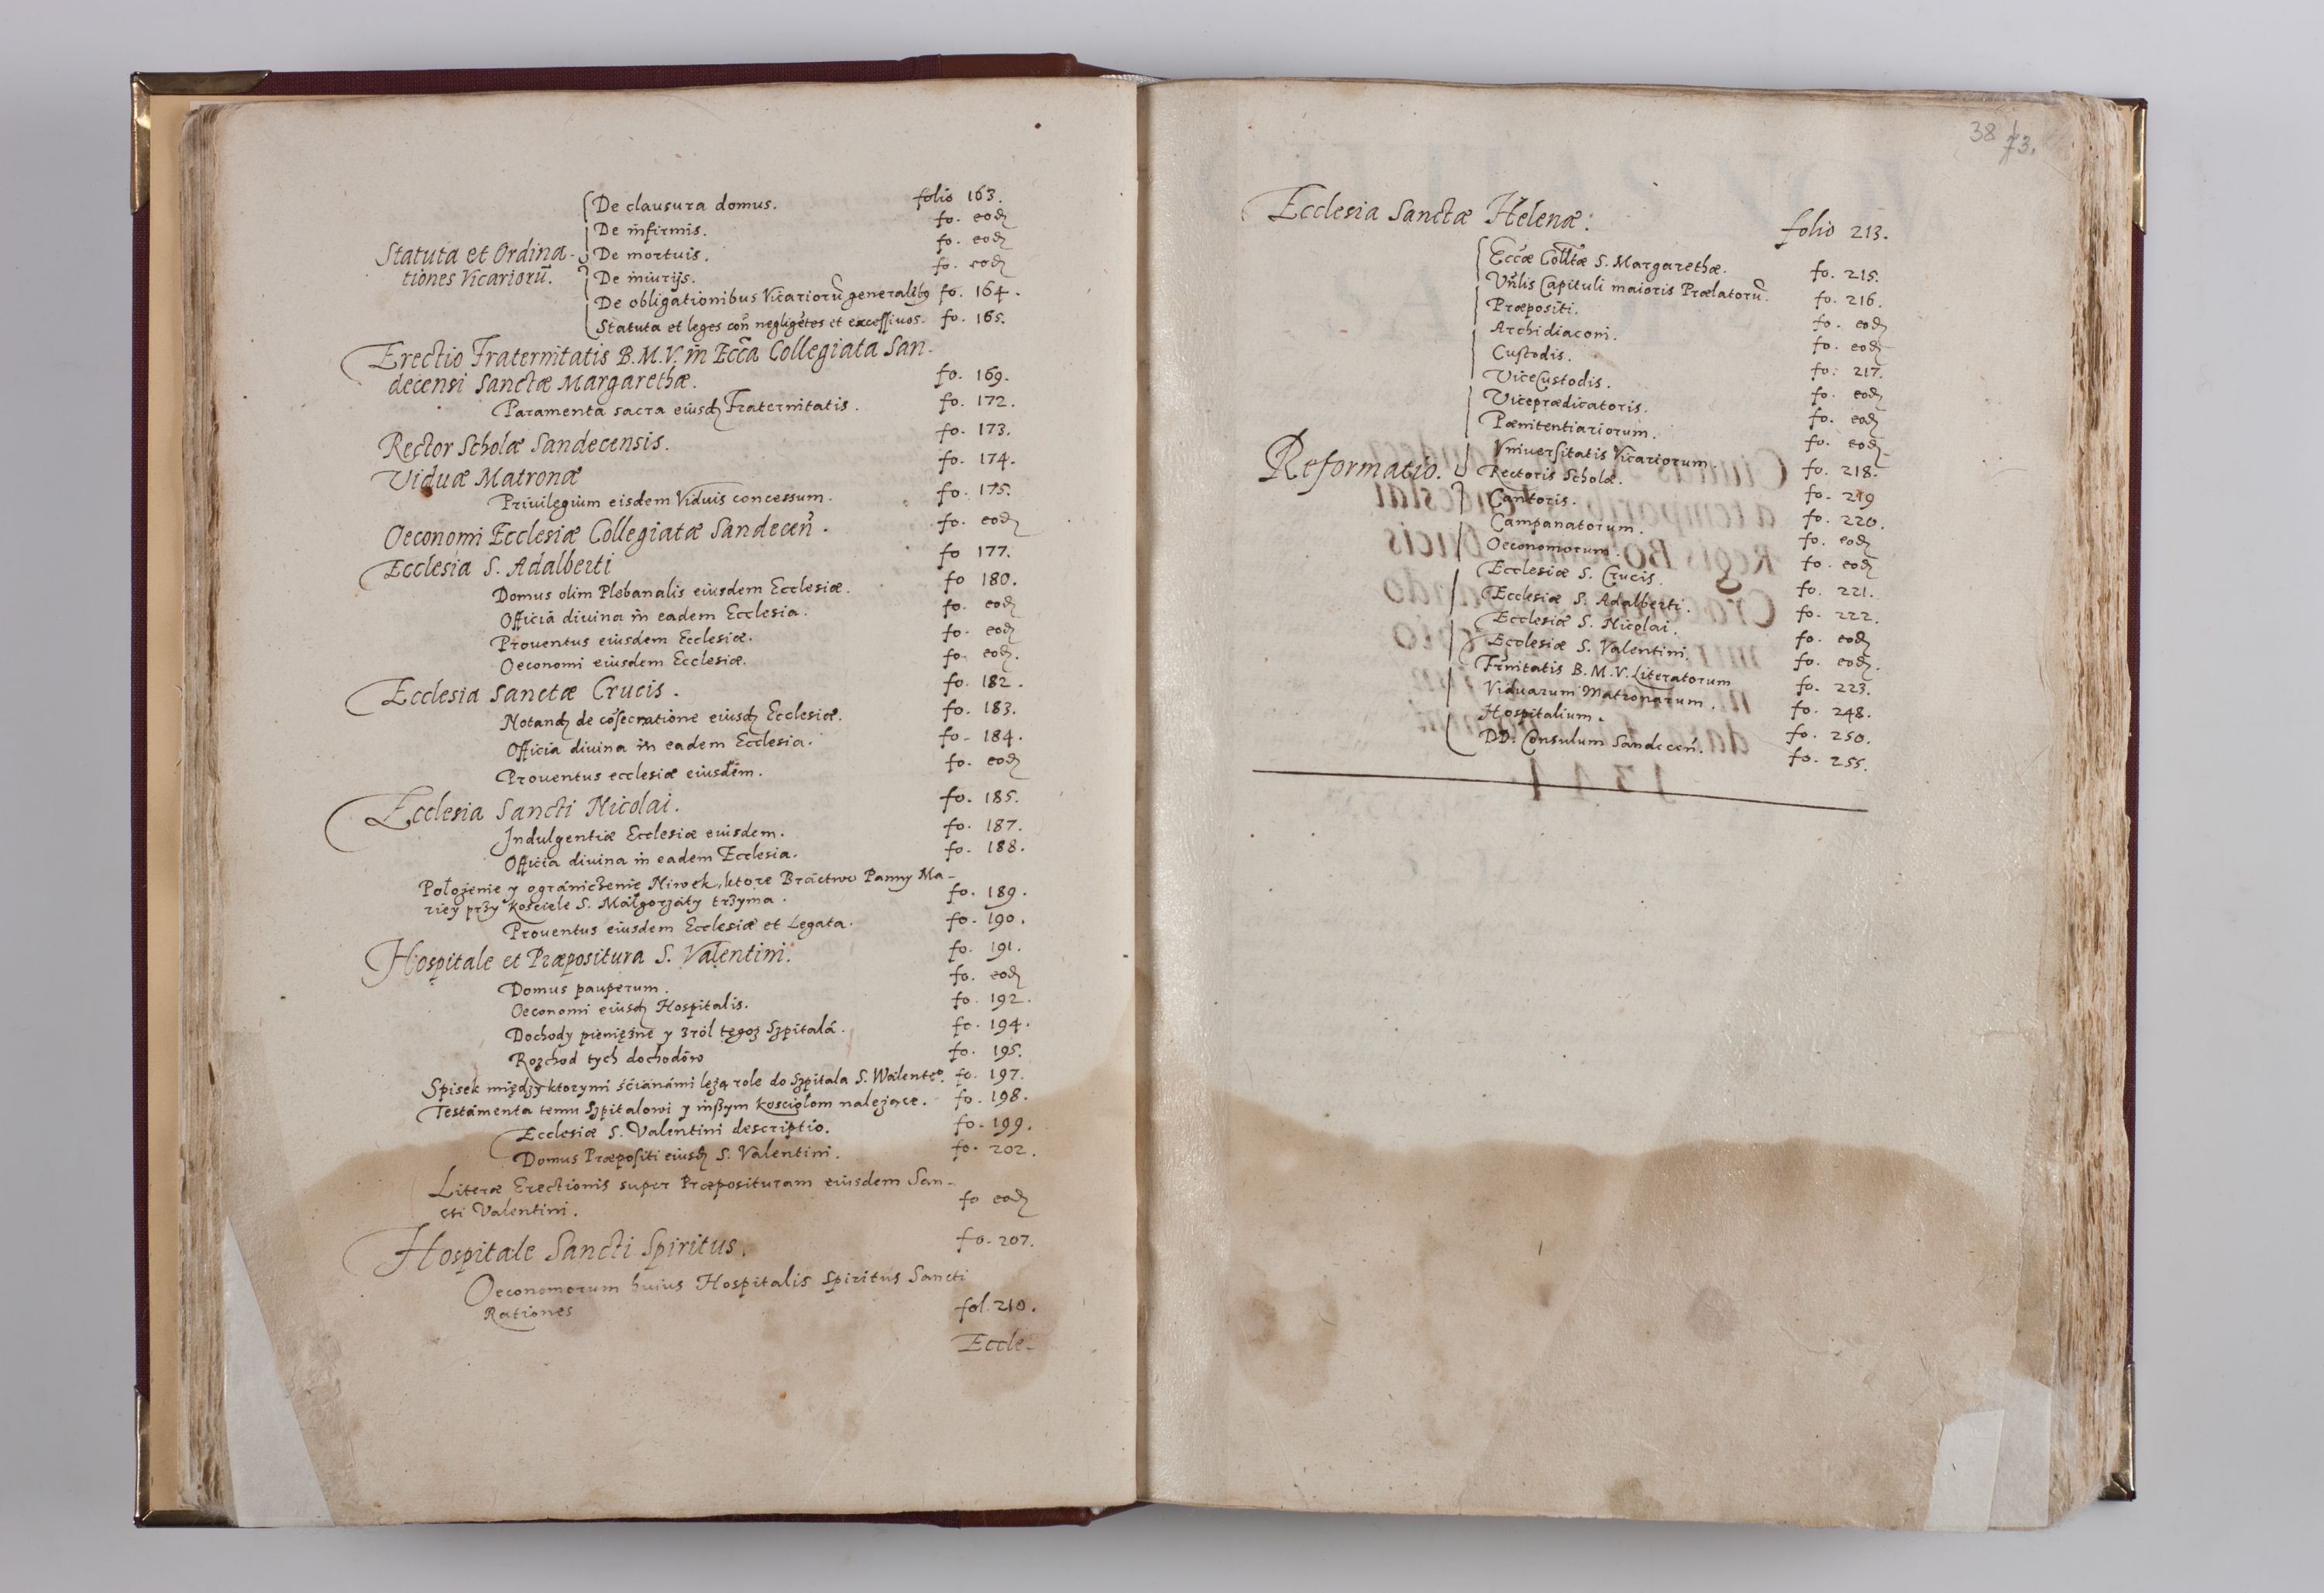 De clausura domus. folio 163.
De infirmis. fo. eodꝫ
Statuta et Ordina- De mortuis. fo. eodꝫ
tiones Vicariorū. De iniurijs. fo. eodꝫ
De obligationibus Vicariorū generalibꝫ fo. 164.
Statuta et leges con̄ negligētes et excessiuos. fo. 165.
Erectio Fraternitatis B. M. V. in Ecc̄a Collegiata San-
decensi Sanctæ Margarethæ. fo. 169.
Paramenta sacra eiusdꝫ Fraternitatis. fo. 172.
Rector Scholæ Sandecensis. fo. 173.
Viduæ Matronæ fo. 174.
Privilegium eisdem Viduis concessum. fo. 175.
Oeconomi Ecclesiæ Collegiatæ Sandecen̄. fo. eodꝫ
Ecclesia S. Adalberti fo 177.
Domus olim Plebanalis eiusdem Ecclesiæ. fo 180.
Officia diuina in eadem Ecclesia. fo. eodꝫ
Prouentus eiusdem Ecclesiæ. fo. eodꝫ
Oeconomi eiusdem Ecclesiæ. fo. eodꝫ.
Ecclesia Sanctæ Crucis. fo. 182.
Notandꝫ de cōsecratione eiusdꝫ Ecclesiæ. fo. 183.
Officia diuina in eadem Ecclesia. fo. 184.
Prouentus ecclesiæ eiusdem. fo. eodꝫ
Ecclesia Sancti Nicolai. fo. 185.
Indulgentiæ Ecclesiæ eiusdem. fo. 187.
Officia diuina in eadem Ecclesia. fo. 188.
Położenie y ográniczenie Niwek, ktore Bráctwo Panny Ma-
riey przy Kościele S. Máłgorzáty trzyma. fo. 189.
Prouentus eiusdem Ecclesiæ et Legata. fo. 190.
Hospitale et Præpositura S. Valentini. fo. 191.
Domus pauperum. fo. eodꝫ
Oeconomi eiusdꝫ Hospitalis. fo. 192.
Dochody pieniężne y z ról tegoż Szpitalá. fo. 194.
Rozchod tych dochodów fo. 195.
Spisek między ktorymi ścianámi leżą role do Szpitala S. Wálenteº. fo. 197.
Testámenta temu Szpitalowi y inszym Kosciołom nalezące. fo. 198.
Ecclesiæ S. Valentini descriptio. fo. 199.
Domus Præpositi eiusdꝫ S. Valentini. fo. 202.
Literæ Erectionis super Præposituram eiusdem San-
cti Valentini. fo eodꝫ
Hospitale Sancti Spiritus. fo. 207.
Oeconomorum huius Hospitalis Spiritus Sancti
Rationes fol. 210.
Eccle-
38 73.
Ecclesia Sanctæ Helenæ: folio 213.
Eccæ Colltæ S. Margarethæ. fo. 215.
Vn̄lis Capituli maioris Prælatorū. fo. 216.
Præpositi. fo. eodꝫ
Archidiaconi. fo. eodꝫ
Custodis. fo. 217.
ViceCustodis. fo. eodꝫ
Viceprædicatoris. fo. eodꝫ
Pænitentiariorum. fo. eodꝫ
Vniuersitatis Vicariorum. fo. 218.
Reformatio. Rectoris Scholæ. fo. 219
Cantoris. fo. 220.
Campanatorum. fo. eodꝫ
Oeconomorum. fo. eodꝫ
Ecclesiæ S. Crucis. fo. 221.
Ecclesiæ S. Adalberti. fo. 222.
Ecclesiæ S. Nicolai. fo. eodꝫ
Ecclesiæ S. Valentini. fo. eodꝫ.
Fr̄nitatis B. M. V. Literatorum fo. 223.
Viduarum Matronarum. fo. 248.
Hospitalium. fo. 250.
DD. Consulum Sandecen̄. fo. 255.